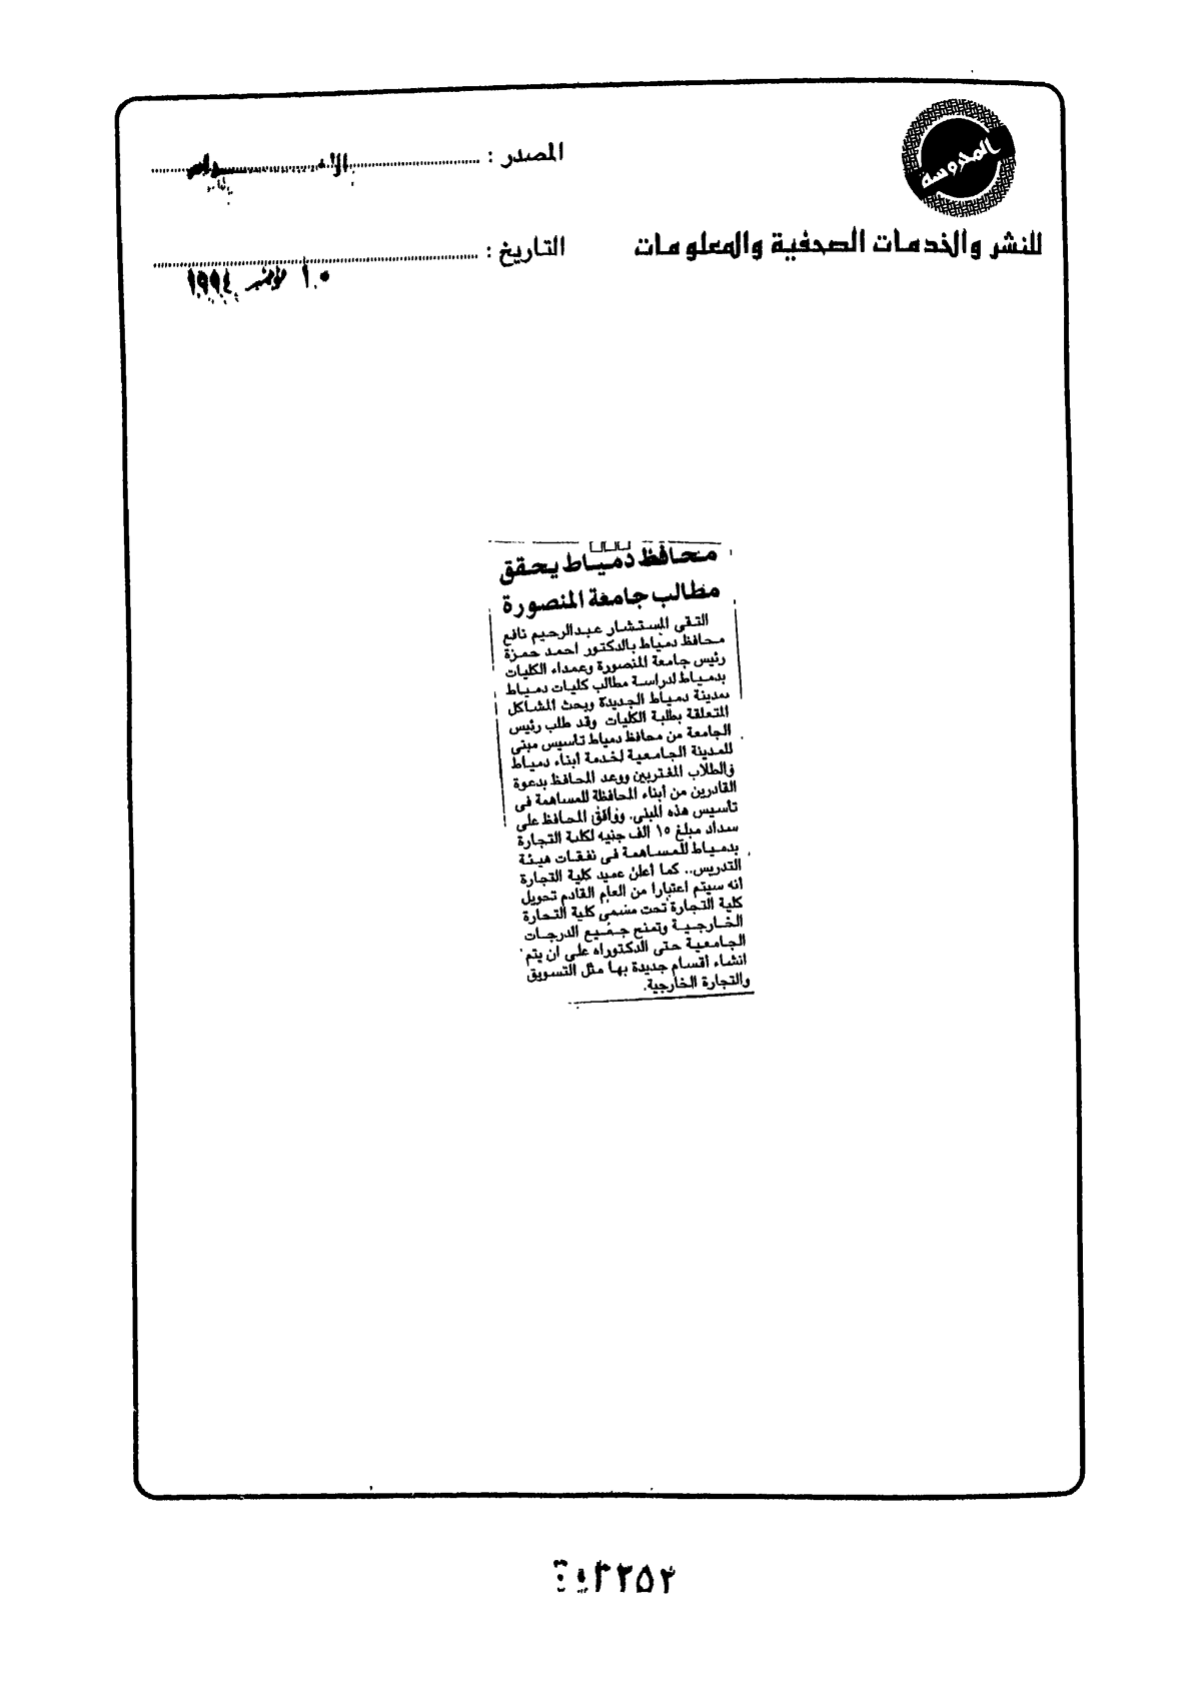 المحروسة
للنشر والخدمات الصحفية والمعلومات
المصدر :
التاريخ :
نوفمبر ١٩٩٤
محافظ دمياط يحقق
مطالب جامعة المنصورة
التقى المستشار عبدالرحيم نافع
محافظ دمياط بالدكتور احمد حمزة
رئيس جامعة المنصورة وعمداء الكليات
بدمياط لدراسة مطالب كليات دمياط
بمدينة دمياط الجديدة وبحث المشاكل
المتعلقة بطلبة الكليات وقد طلب رئيس
الجامعة من محافظ دمياط تأسيس مبنى
للمدينة الجامعية لخدمة ابناء دمياط
والطلاب المغتربين ووعد المحافظ بدعوة
القادرين من أبناء المحافظة للمساهمة فى
تأسيس هذه المبنى. ووافق المحافظ على
سداد مبلغ ١٥ الف جنيه لكلية التجارة
بدمياط للمساهمة فى نفقات هيئة
التدريس.. كما أعلن عميد كلية التجارة
أنه سيتم اعتبارا من العام القادم تحويل
كلية التجارة تحت مسمى كلية التجارة
الخارجية وتمنح جميع الدرجات
الجامعية حتى الدكتوراه على ان يتم
انشاء اقسام جديدة بها مثل التسويق
والتجارة الخارجية.